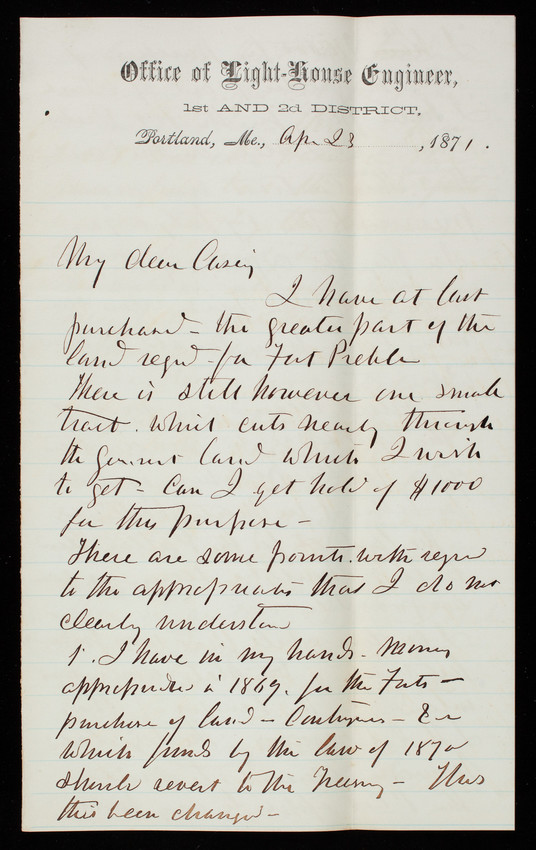 Office of Light-House Engineer,
1st AND 2d DISTRICT,
Portland, Me., Apr 23, 1871.
My dear Casey
I have at last
purchased - the greater part of the
land reqd - for Fort Preble
There is still however one small
tract. which cuts nearly through
the land which I wish
to get - Can I get hold of $1000
for this purpose -
There are some points. with regard
to the appropriations that I do not
clearly understand
1. I have in my hands - money
appropriated in 1869. for the Forts -
purchase of land - Contingencies - &c
which funds by the law of 1870
should revert to the Treasury - Has
this been changed -